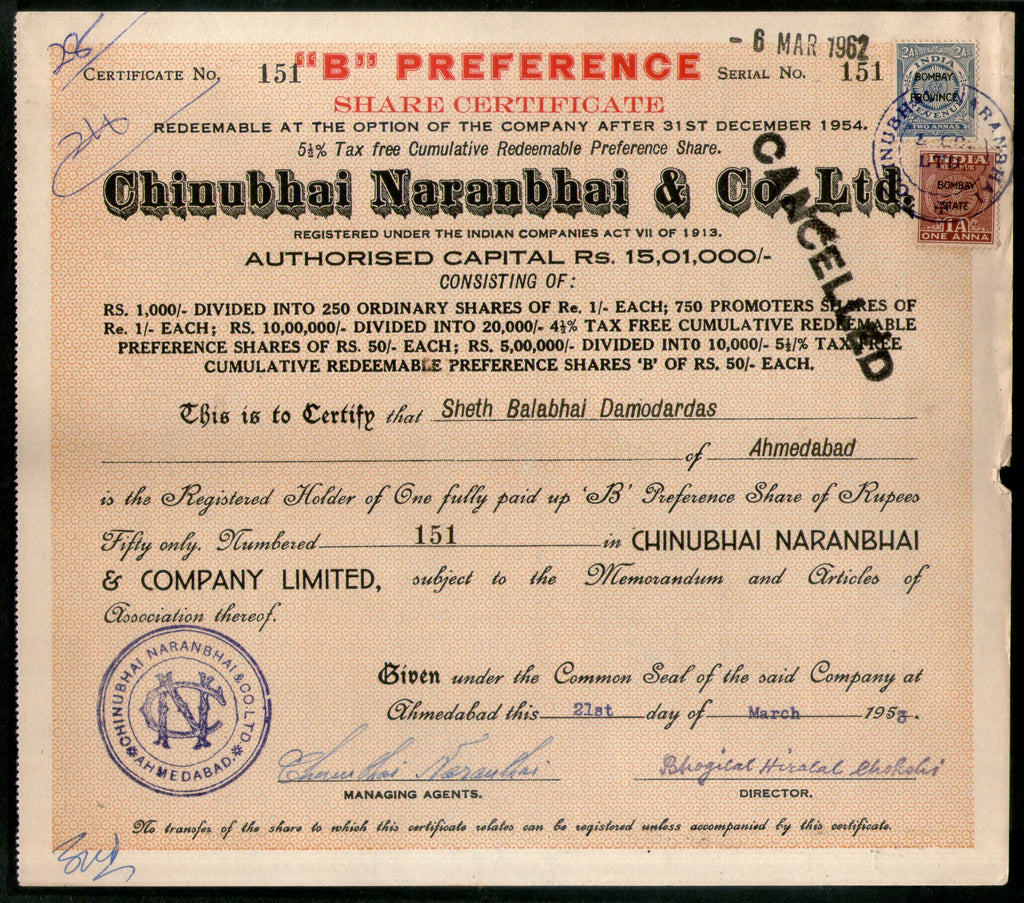 28
24
- 6 MAR 1962
CERTIFICATE NO. 151 "B" PREFERENCE SERIAL NO. 151
SHARE CERTIFICATE
REDEEMABLE AT THE OPTION OF THE COMPANY AFTER 31ST DECEMBER 1954.
5½% Tax free Cumulative Redeemable Preference Share.
Chinubhai Naranbhai & Co. Ltd.
REGISTERED UNDER THE INDIAN COMPANIES ACT VII OF 1913.
AUTHORISED CAPITAL Rs. 15,01,000/-
CONSISTING OF:
RS. 1,000/- DIVIDED INTO 250 ORDINARY SHARES OF Re. 1/- EACH; 750 PROMOTERS SHARES OF
Re. 1/- EACH; RS. 10,00,000/- DIVIDED INTO 20,000/- 4½% TAX FREE CUMULATIVE REDEEMABLE
PREFERENCE SHARES OF RS. 50/- EACH; RS. 5,00,000/- DIVIDED INTO 10,000/- 5½/% TAX FREE
CUMULATIVE REDEEMABLE PREFERENCE SHARES 'B' OF RS. 50/- EACH.
CANCELLED
2As 2As
INDIA
BOMBAY
PROVINCE
REVENUE
TWO ANNAS
INDIA
BOMBAY
STATE
1A
ONE ANNA
This is to Certify that Sheth Balabhai Damodardas
of Ahmedabad
is the Registered Holder of One fully paid up 'B' Preference Share of Rupees
Fifty only. Numbered 151 in CHINUBHAI NARANBHAI
& COMPANY LIMITED, subject to the Memorandum and Articles of
Association thereof.
CHINUBHAI NARANBHAI & CO. LTD.
AHMEDABAD.
Given under the Common Seal of the said Company at
Ahmedabad this 21st day of March 1953.
Chinubhai Naranbhai
Bhogilal Hiralal Chokshi
MANAGING AGENTS.
DIRECTOR.
No transfer of the share to which this certificate relates can be registered unless accompanied by this certificate.